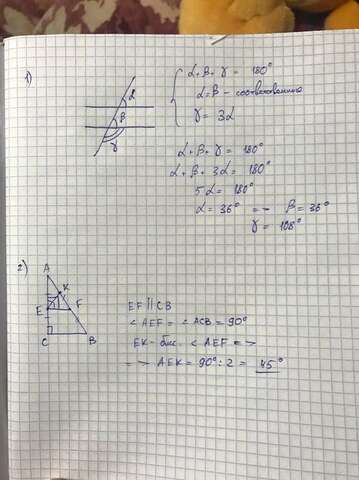 1)
α
β
γ
α + β + γ = 180°
α = β - соответственно
γ = 3α
α + β + γ = 180°
α + β + 3α = 180°
5α = 180°
α = 36° => β = 36°
γ = 108°
2)
A
K
E
F
C
B
EF || CB
∠AEF = ∠ACB = 90°
EK - бис. ∠AEF =>
=> AEK = 90° : 2 = 45°